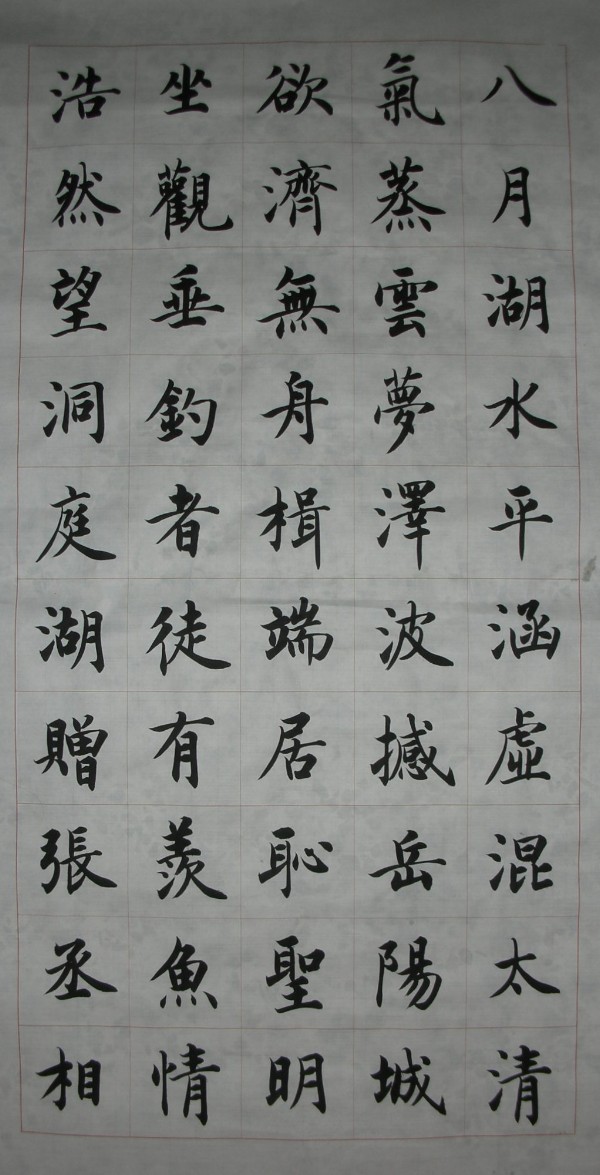 八月湖水平涵虛混太清
氣蒸雲夢澤波撼岳陽城
欲濟無舟楫端居恥聖明
坐觀垂釣者徒有羨魚情
浩然望洞庭湖贈張丞相